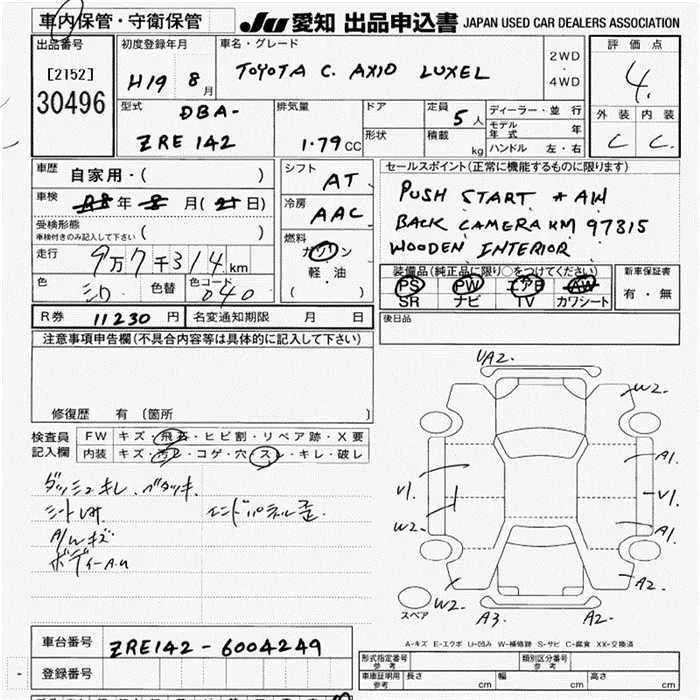 車内保管・守衛保管
JU 愛知 出品申込書 JAPAN USED CAR DEALERS ASSOCIATION
出品番号
[2152]
30496
初度登録年月
H19 8月
車名・グレード
TOYOTA C. AXIO LUXEL
2WD
・
4WD
評価点
4.
外装 内装
C C.
型式
DBA-
ZRE142
排気量
1.79CC
ドア
形状
定員
5人
積載
kg
ディーラー・並行
モデル年式 年
ハンドル 左・右
車歴
自家用・( )
車検
年 月( 日)
受検形態
車検付きのみ記入して下さい ( )
走行
9万7千314km
色
シロ
色替
色コード
040
シフト
AT
冷房
AAC
燃料
ガソリン
軽油
( )
セールスポイント(正常に機能するものに限ります)
PUSH START * AW
BACK CAMERA KM 97315
WOODEN INTERIOR
装備品(純正品に限り○をつけてください)
PS PW エアB AW
SR ナビ TV カワシート
新車保証書
有・無
R券 11230円
名変通知期限 月 日
後日品
注意事項申告欄(不具合内容等は具体的に記入して下さい)
修復歴 有 (箇所 )
検査員
記入欄
FW キズ・飛石・ヒビ割・リペア跡・X要
内装 キズ・汚レ・コゲ・穴・スレ・キレ・破レ
ダッシュキレ、ベタツキ.
シートUH
エンドパネル歪.
A/Wキズ
ボディーA.U
UA2.
W2.
A1.
V1.
V1.
W2.
A1.
A2.
W2.
A3.
A2.
スペア
A-キズ E-エクボ U-凹み W-補修跡 S-サビ C-腐食 XX-交換済
車台番号
ZRE142-6004249
登録番号
-
形式指定番号
参考
類別区分番号
参考
車庫証明用
参考
長さ cm
幅 cm
高さ cm